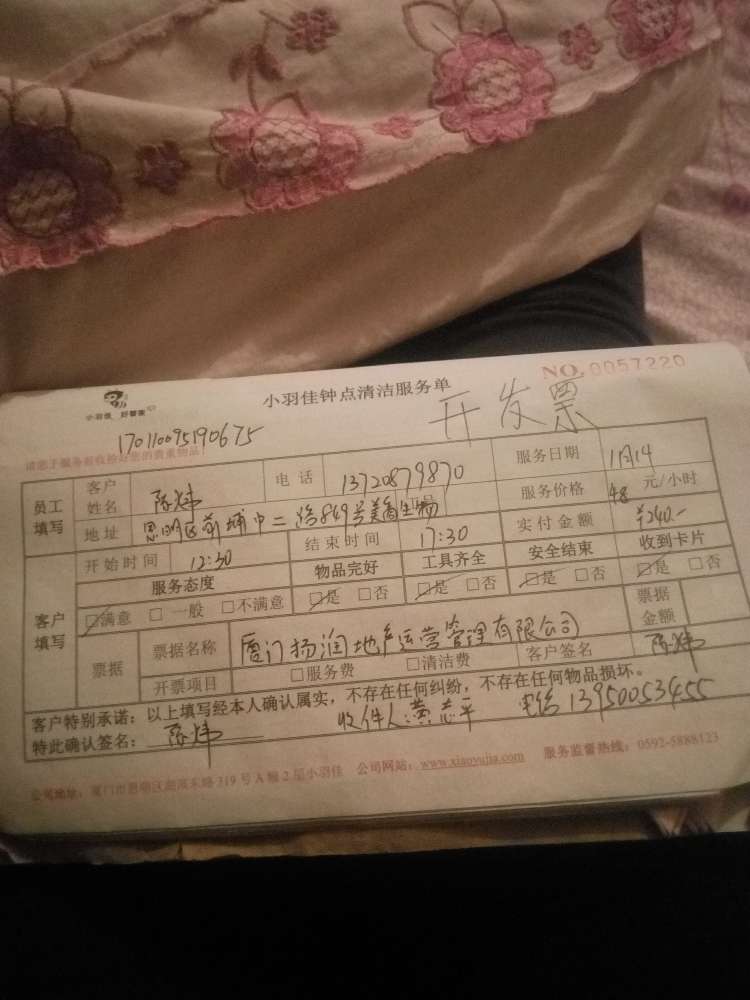 小羽佳 好管家
小羽佳钟点清洁服务单
NO. 0057220
开发票
170110095190675
请您于服务前收拾好您的贵重物品!
员工填写 客户姓名 陈炜 电话 13720879870 服务日期 1月14
地址 思明区前埔中二路849号美商生物 服务价格 48 元/小时
开始时间 12:30 结束时间 17:30 实付金额 ¥240.-
客户填写 服务态度 物品完好 工具齐全 安全结束 收到卡片
☑满意 □一般 □不满意 ☑是 □否 ☑是 □否 ☑是 □否 ☑是 □否
票据 票据名称 厦门扬润地产运营管理有限公司 票据金额
开票项目 □服务费 □清洁费 客户签名 陈炜
客户特别承诺:以上填写经本人确认属实,不存在任何纠纷,不存在任何物品损坏。
特此确认签名: 陈炜 收件人:黄志平 电话 13950053455
公司地址:厦门市思明区 319号A幢2层小羽佳 公司网站:www.xiaoyujia.com 服务监督热线:0592-5888123